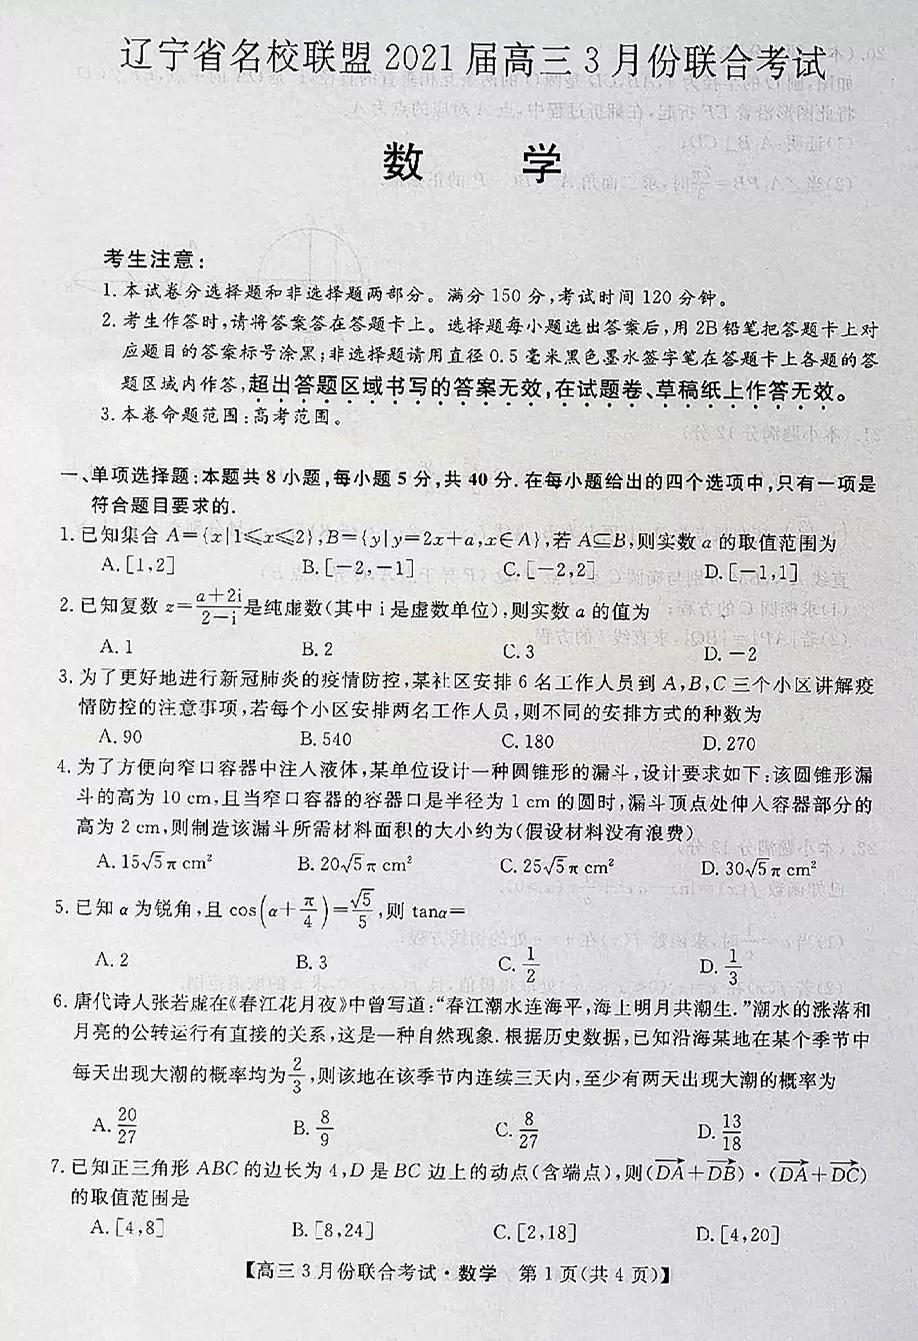 辽宁省名校联盟2021届高三3月份联合考试
数 学
考生注意:
1.本试卷分选择题和非选择题两部分。满分150分,考试时间120分钟。
2.考生作答时,请将答案答在答题卡上。选择题每小题选出答案后,用2B铅笔把答题卡上对
应题目的答案标号涂黑;非选择题请用直径0.5毫米黑色墨水签字笔在答题卡上各题的答
题区域内作答,超出答题区域书写的答案无效,在试题卷、草稿纸上作答无效。
3.本卷命题范围:高考范围。
一、单项选择题:本题共8小题,每小题5分,共40分.在每小题给出的四个选项中,只有一项是
符合题目要求的.
1.已知集合A={x|1⩽x⩽2},B={y|y=2x+a,x∈A},若A⊆B,则实数a的取值范围为
A.[1,2] B.[-2,-1] C.[-2,2] D.[-1,1]
2.已知复数z=\frac{a+2i}{2-i}是纯虚数(其中i是虚数单位),则实数a的值为
A.1 B.2 C.3 D.-2
3.为了更好地进行新冠肺炎的疫情防控,某社区安排6名工作人员到A,B,C三个小区讲解疫
情防控的注意事项,若每个小区安排两名工作人员,则不同的安排方式的种数为
A.90 B.540 C.180 D.270
4.为了方便向窄口容器中注入液体,某单位设计一种圆锥形的漏斗,设计要求如下:该圆锥形漏
斗的高为10 cm,且当窄口容器的容器口是半径为1 cm的圆时,漏斗顶点处伸入容器部分的
高为2 cm,则制造该漏斗所需材料面积的大小约为(假设材料没有浪费)
A.15√5π cm² B.20√5π cm² C.25√5π cm² D.30√5π cm²
5.已知α为锐角,且cos(α+\frac{π}{4})=\frac{√5}{5},则tanα=
A.2 B.3 C.\frac{1}{2} D.\frac{1}{3}
6.唐代诗人张若虚在《春江花月夜》中曾写道:“春江潮水连海平,海上明月共潮生.”潮水的涨落和
月亮的公转运行有直接的关系,这是一种自然现象.根据历史数据,已知沿海某地在某个季节中
每天出现大潮的概率均为\frac{2}{3},则该地在该季节内连续三天内,至少有两天出现大潮的概率为
A.\frac{20}{27} B.\frac{8}{9} C.\frac{8}{27} D.\frac{13}{18}
7.已知正三角形ABC的边长为4,D是BC边上的动点(含端点),则(\overrightarrow{DA}+\overrightarrow{DB})·(\overrightarrow{DA}+\overrightarrow{DC})
的取值范围是
A.[4,8] B.[8,24] C.[2,18] D.[4,20]
【高三3月份联合考试·数学 第1页(共4页)】